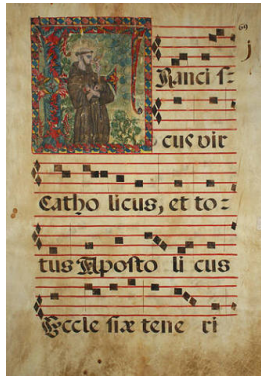 69
j
Franci s-
cus vir
Catho licus, et to-
tus Aposto li cus
Eccle siæ tene ri